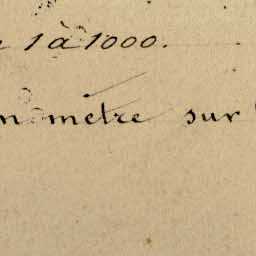 1 à 1000.
n mètre sur